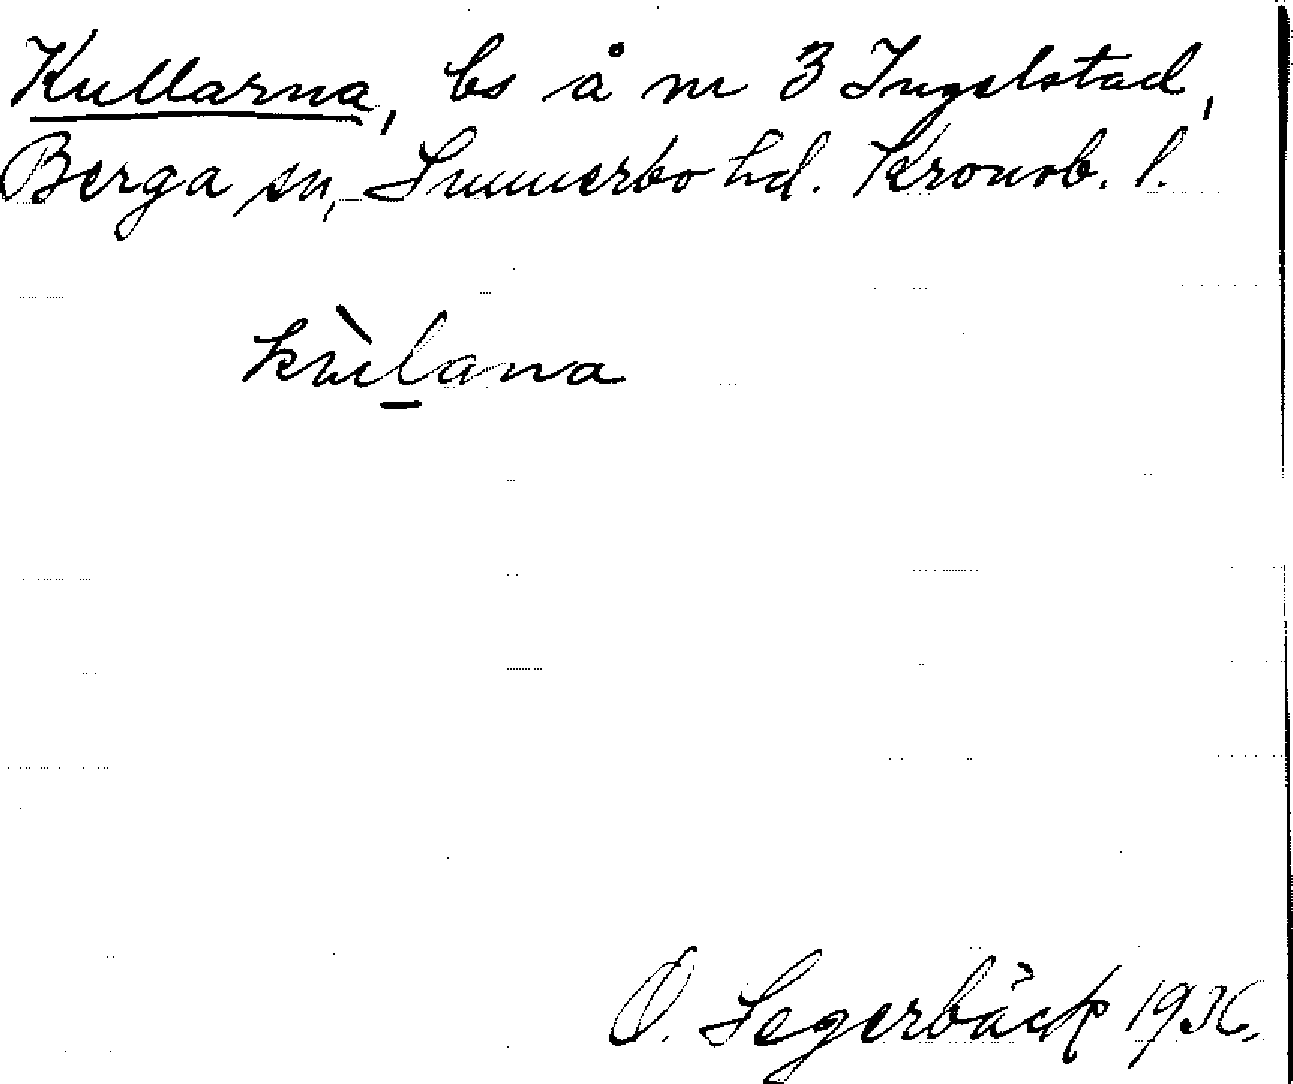 Kullarna, bs å nr 3 Ingelstad,
Berga sn, Sunnerbo hd. Kronob. l.
kùlana
O. Segerbäck 1936.